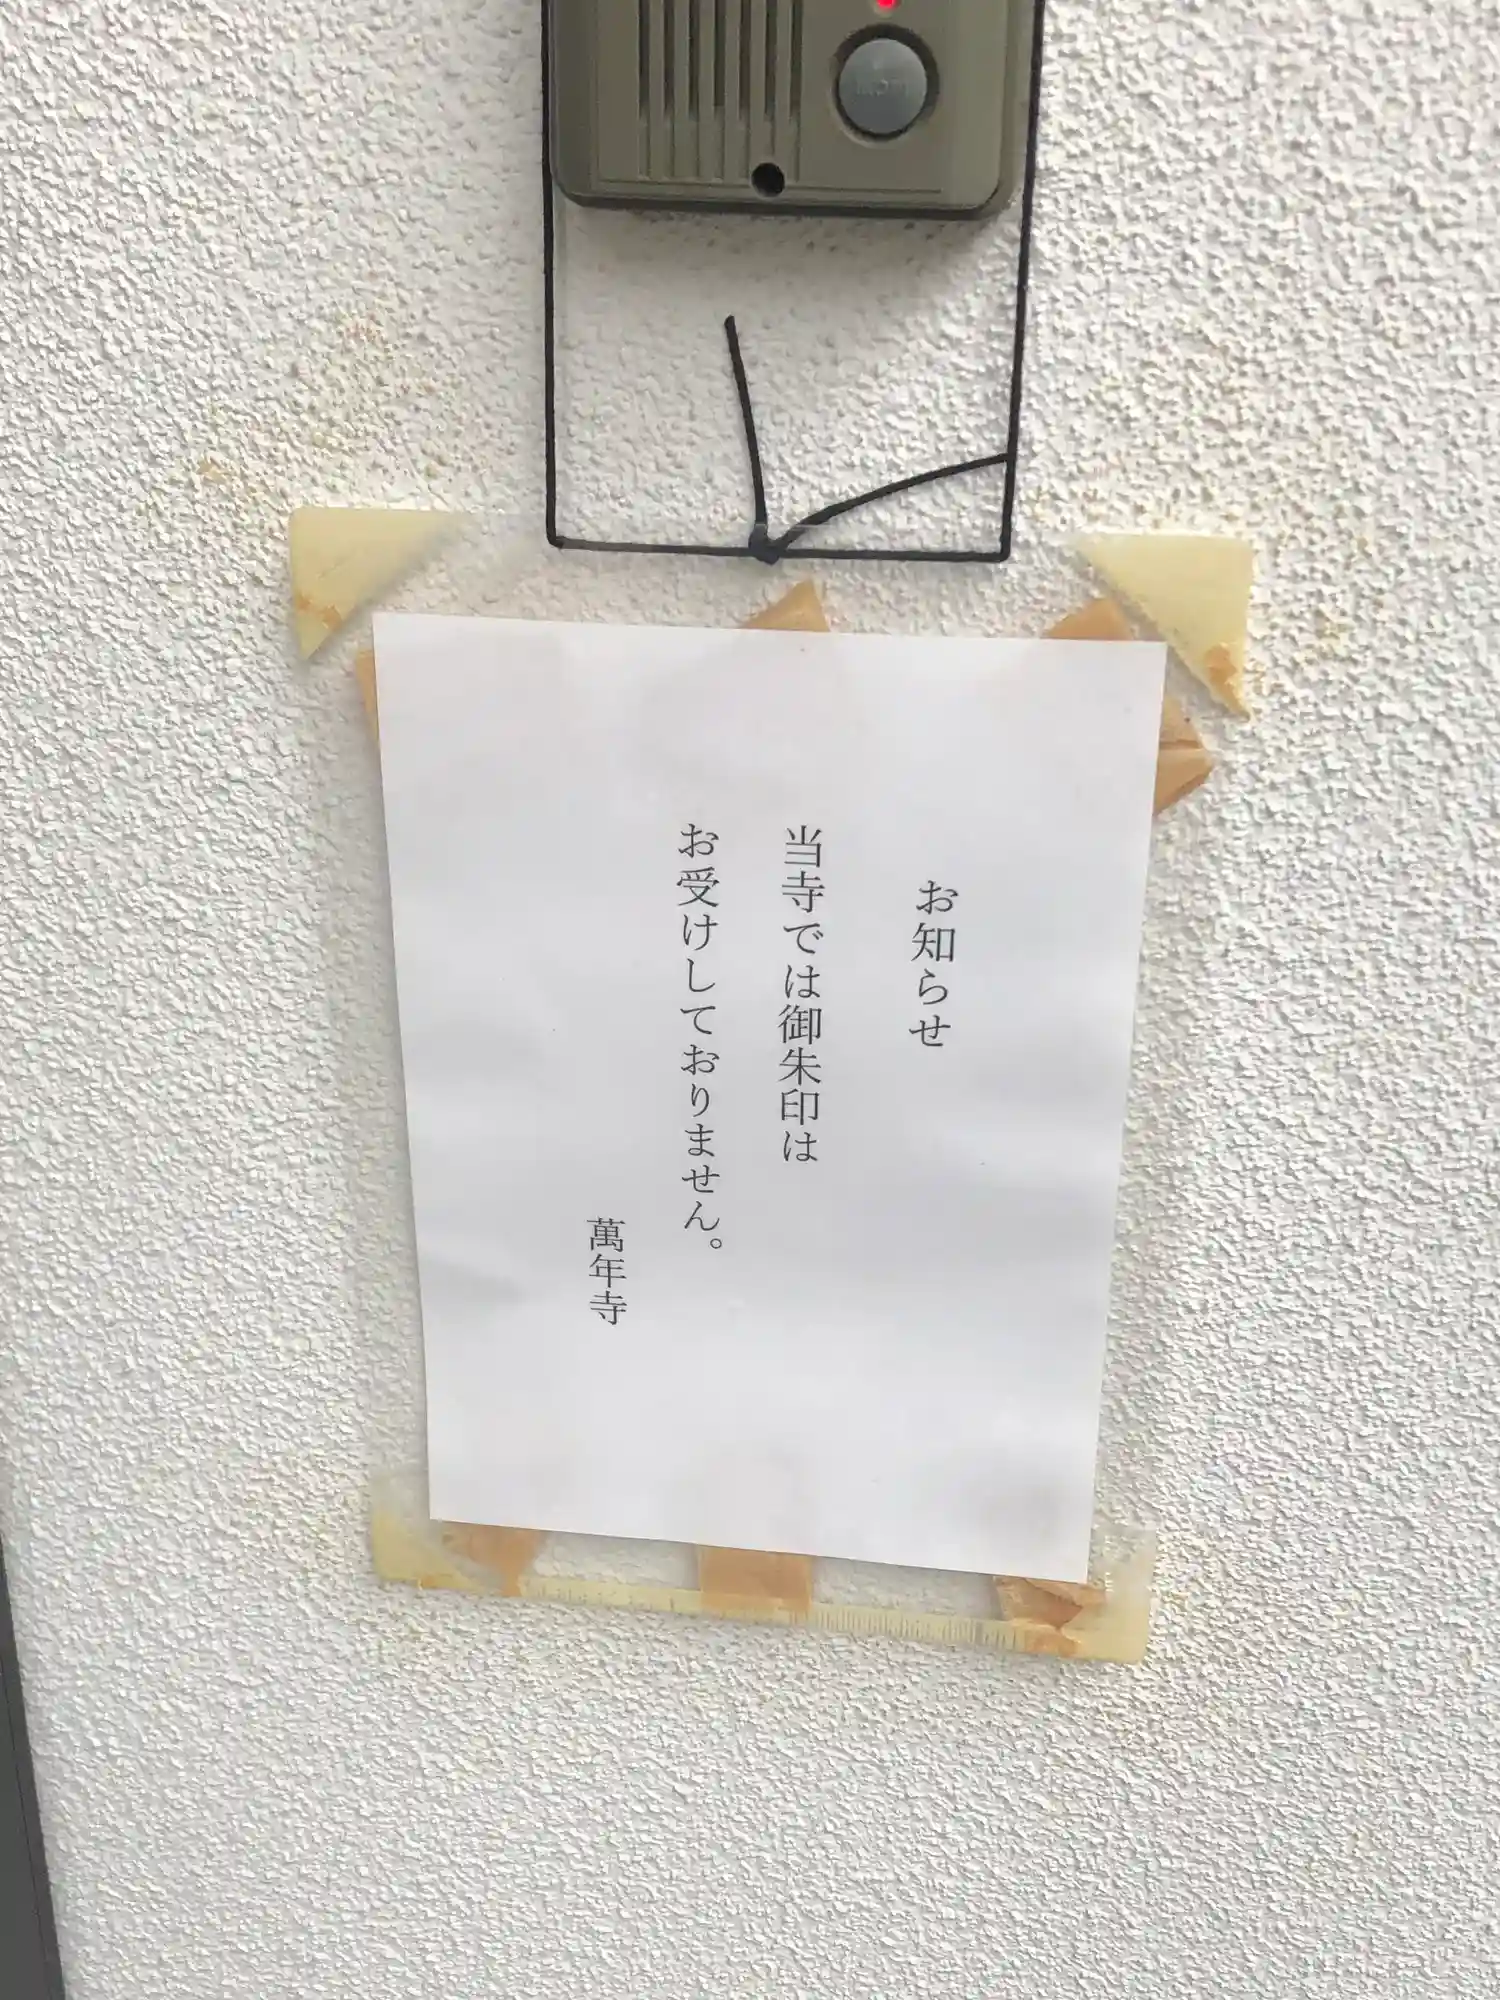 お知らせ
当寺では御朱印は
お受けしておりません。
萬年寺